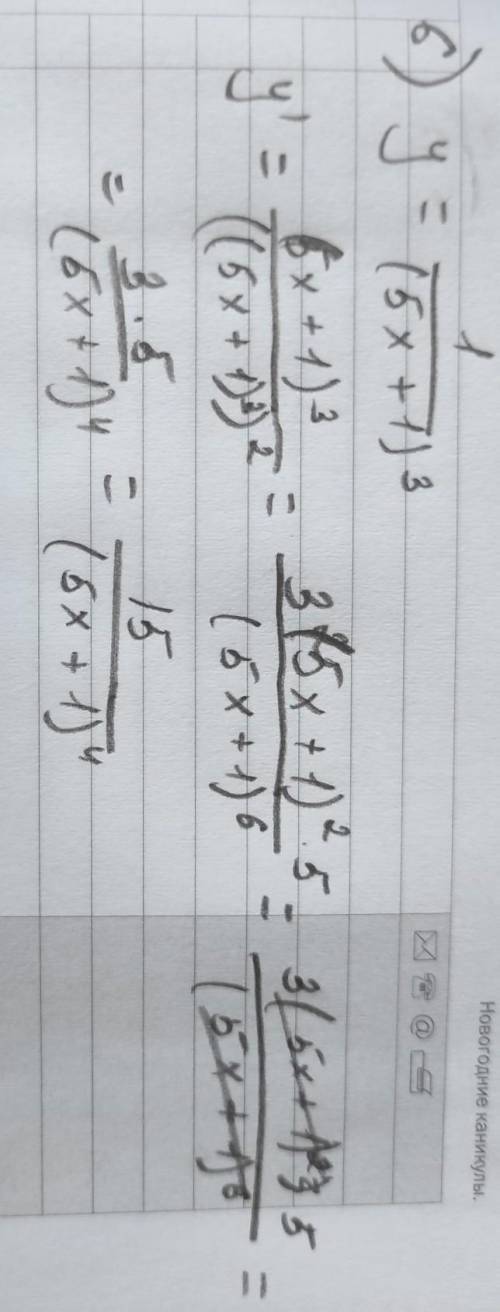 Новогодние каникулы.
б) y = 1/(5x + 1)^3
y' = (5x + 1)^3/((5x + 1)^3)^2 = 3(5x + 1)^2 · 5/(5x + 1)^6 = 3(5x + 1)^2 · 5/(5x + 1)^6 =
= 3 · 5/(5x + 1)^4 = 15/(5x + 1)^4